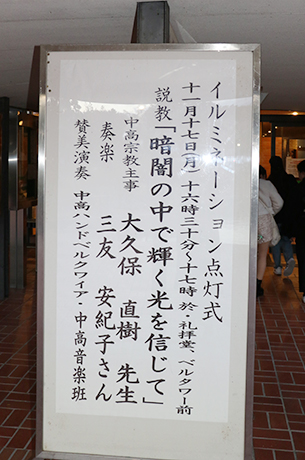 イルミネーション点灯式
十一月十七日(月)十六時三十分~十七時 於・礼拝堂、ベルタワー前
説教「暗闇の中で輝く光を信じて」
中高宗教主事 大久保 直樹 先生
奏楽 三友 安紀子さん
賛美演奏 中高ハンドベルクワイア・中高音楽班